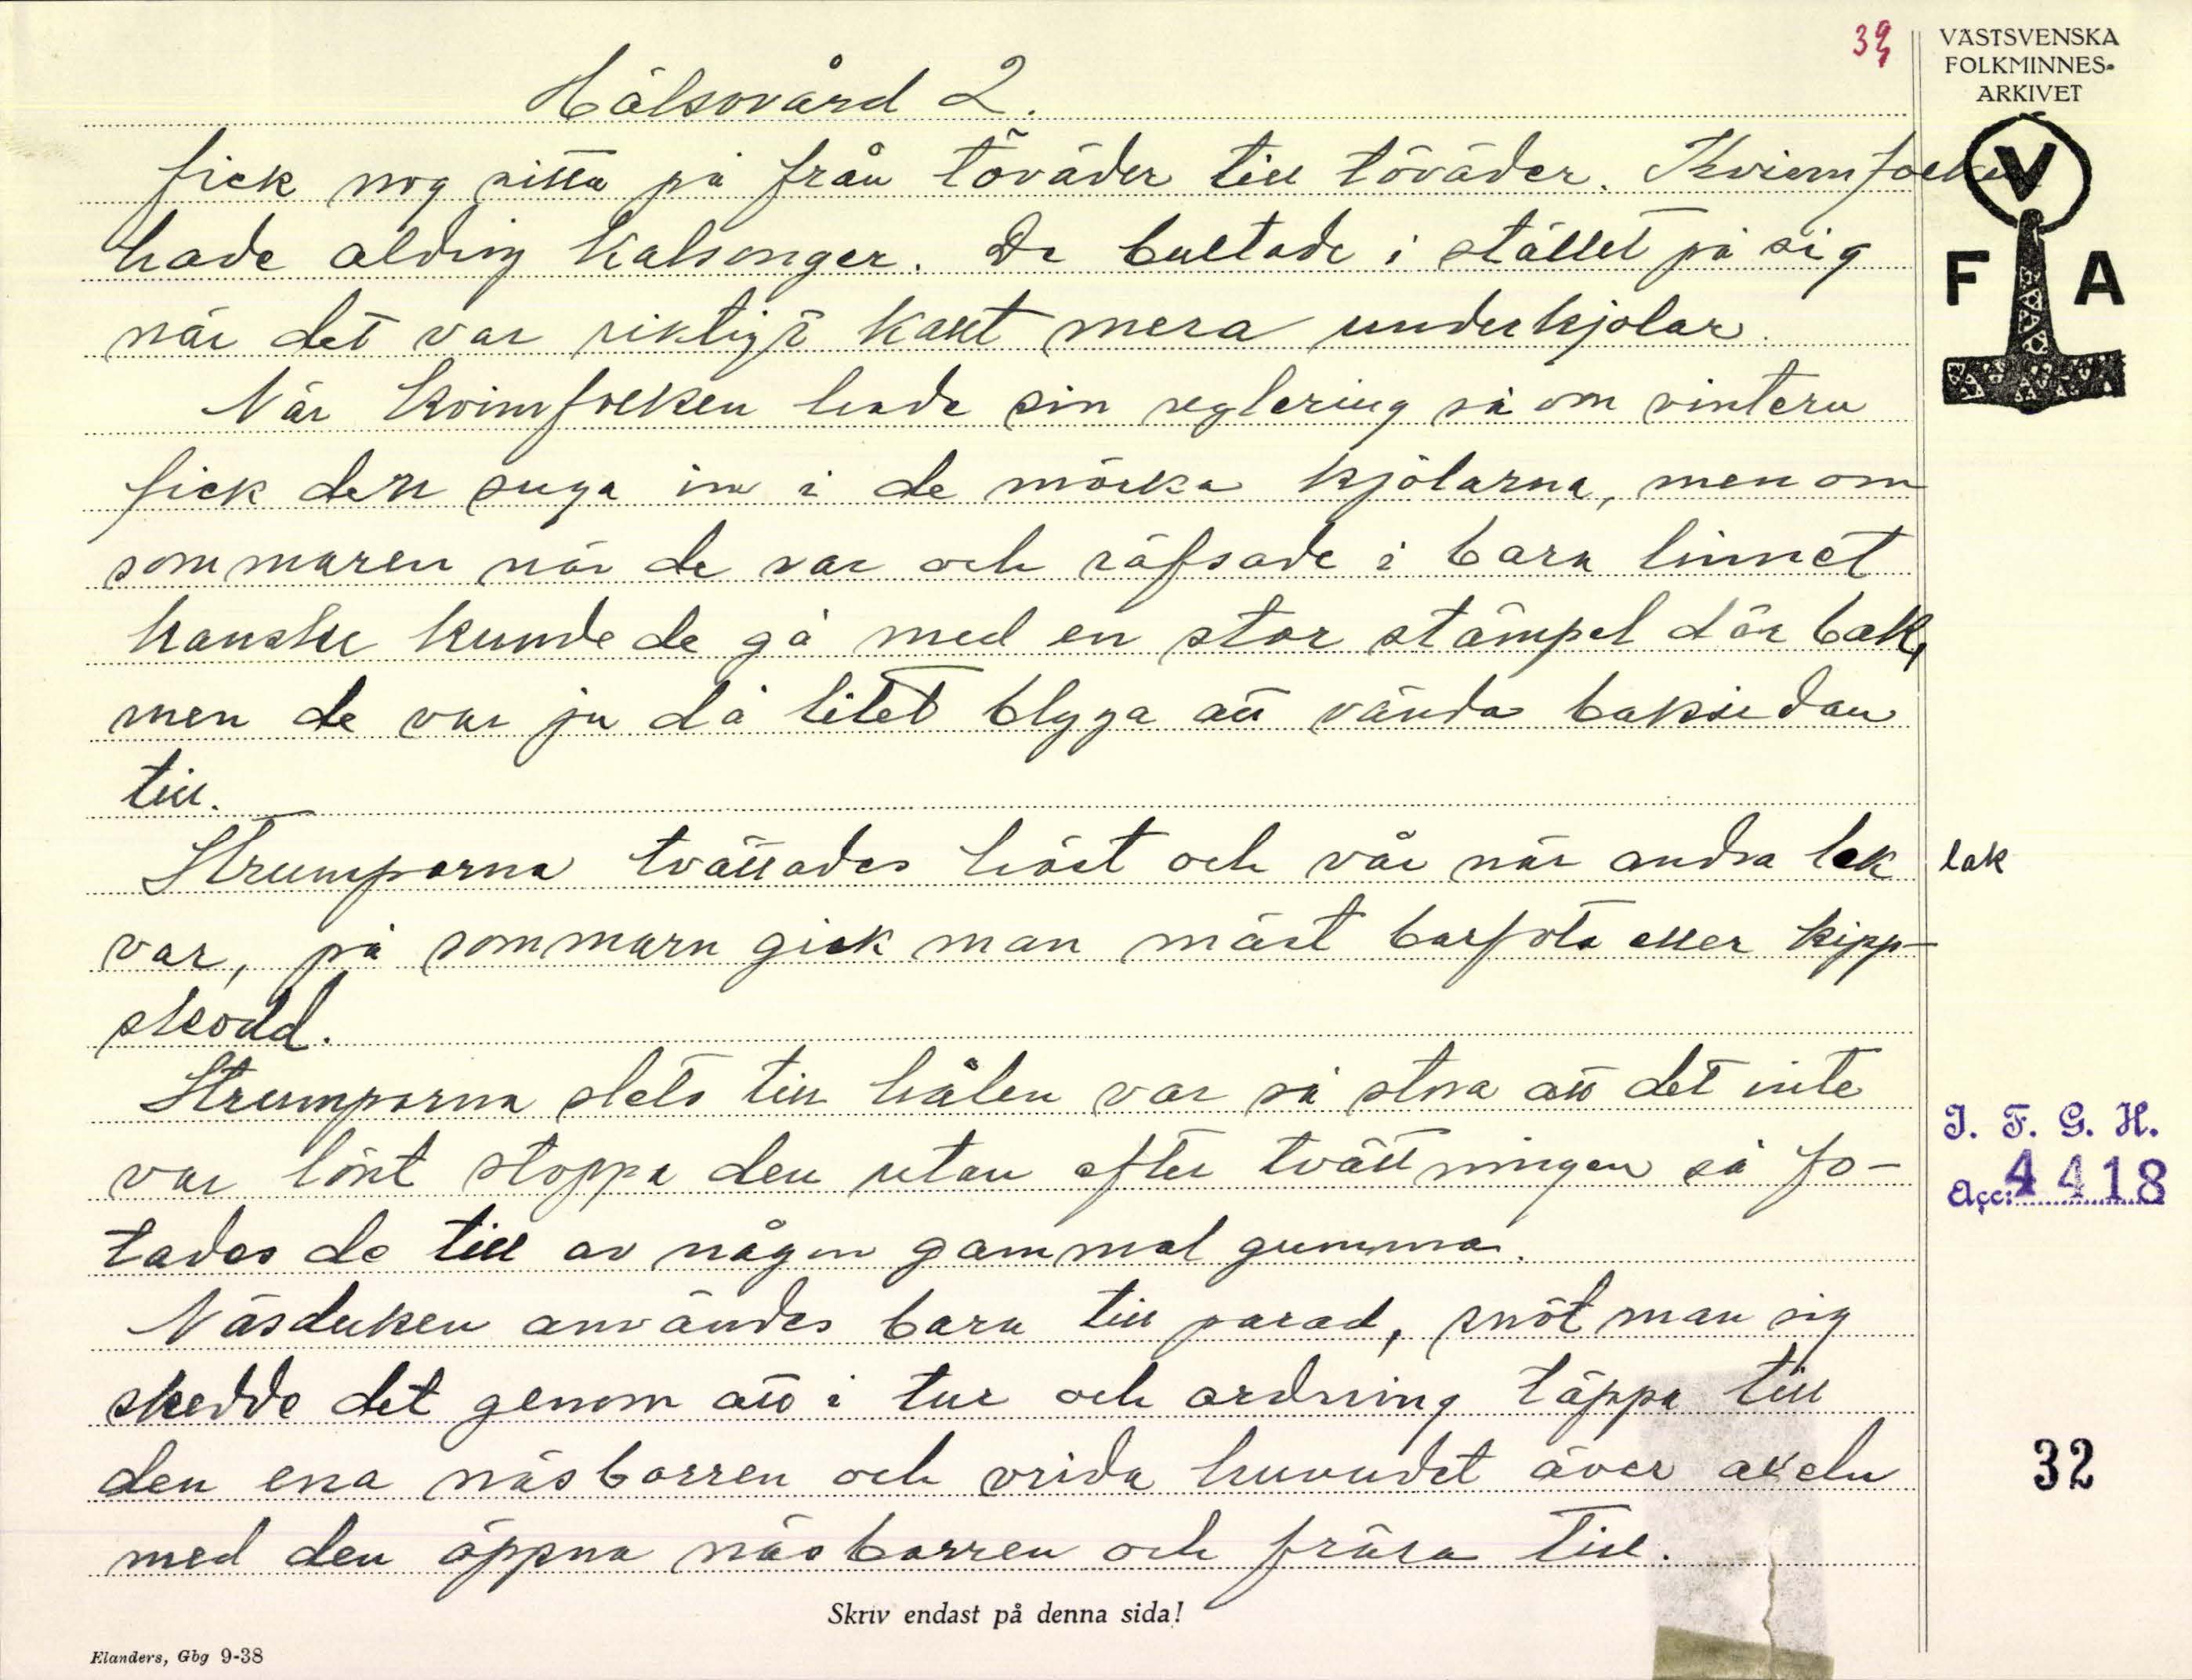 39
VÄSTSVENSKA
FOLKMINNES-
ARKIVET
V
F A
Hälsovård 2.
fick nog sitta på från töväder till töväder. Kvinnfolken
hade aldrig kalsonger. De bultade i stället på sig
när det var riktigt kallt mera underkjolar.
När kvinnfolken hade sin reglering så om vintern
fick den suga in i de mörka kjolarna, men om
sommaren när de var och räfsade i bara linnet
kanske kunde de gå med en stor stämpel där bak,
men de var ju då litet blyga att vända baksidan
till.
Strumporna tvättades höst och vår när andra lak
lak
var, på sommarn gick man mäst barfota eller kipp-
skodd.
Strumporna slets till hålen var så stora att det inte
var lönt stoppa den utan efter tvättningen så fo-
tades de till av någon gammal gumma.
I. F. G. H.
Acc: 4418
Näsduken användes bara till parad, snöt man sig
skedde det genom att i tur och ordning täppa till
den ena näsborren och vrida huvudet över axeln
32
med den öppna näsborren och fräsa till.
Skriv endast på denna sida!
Elanders, Gbg 9-38